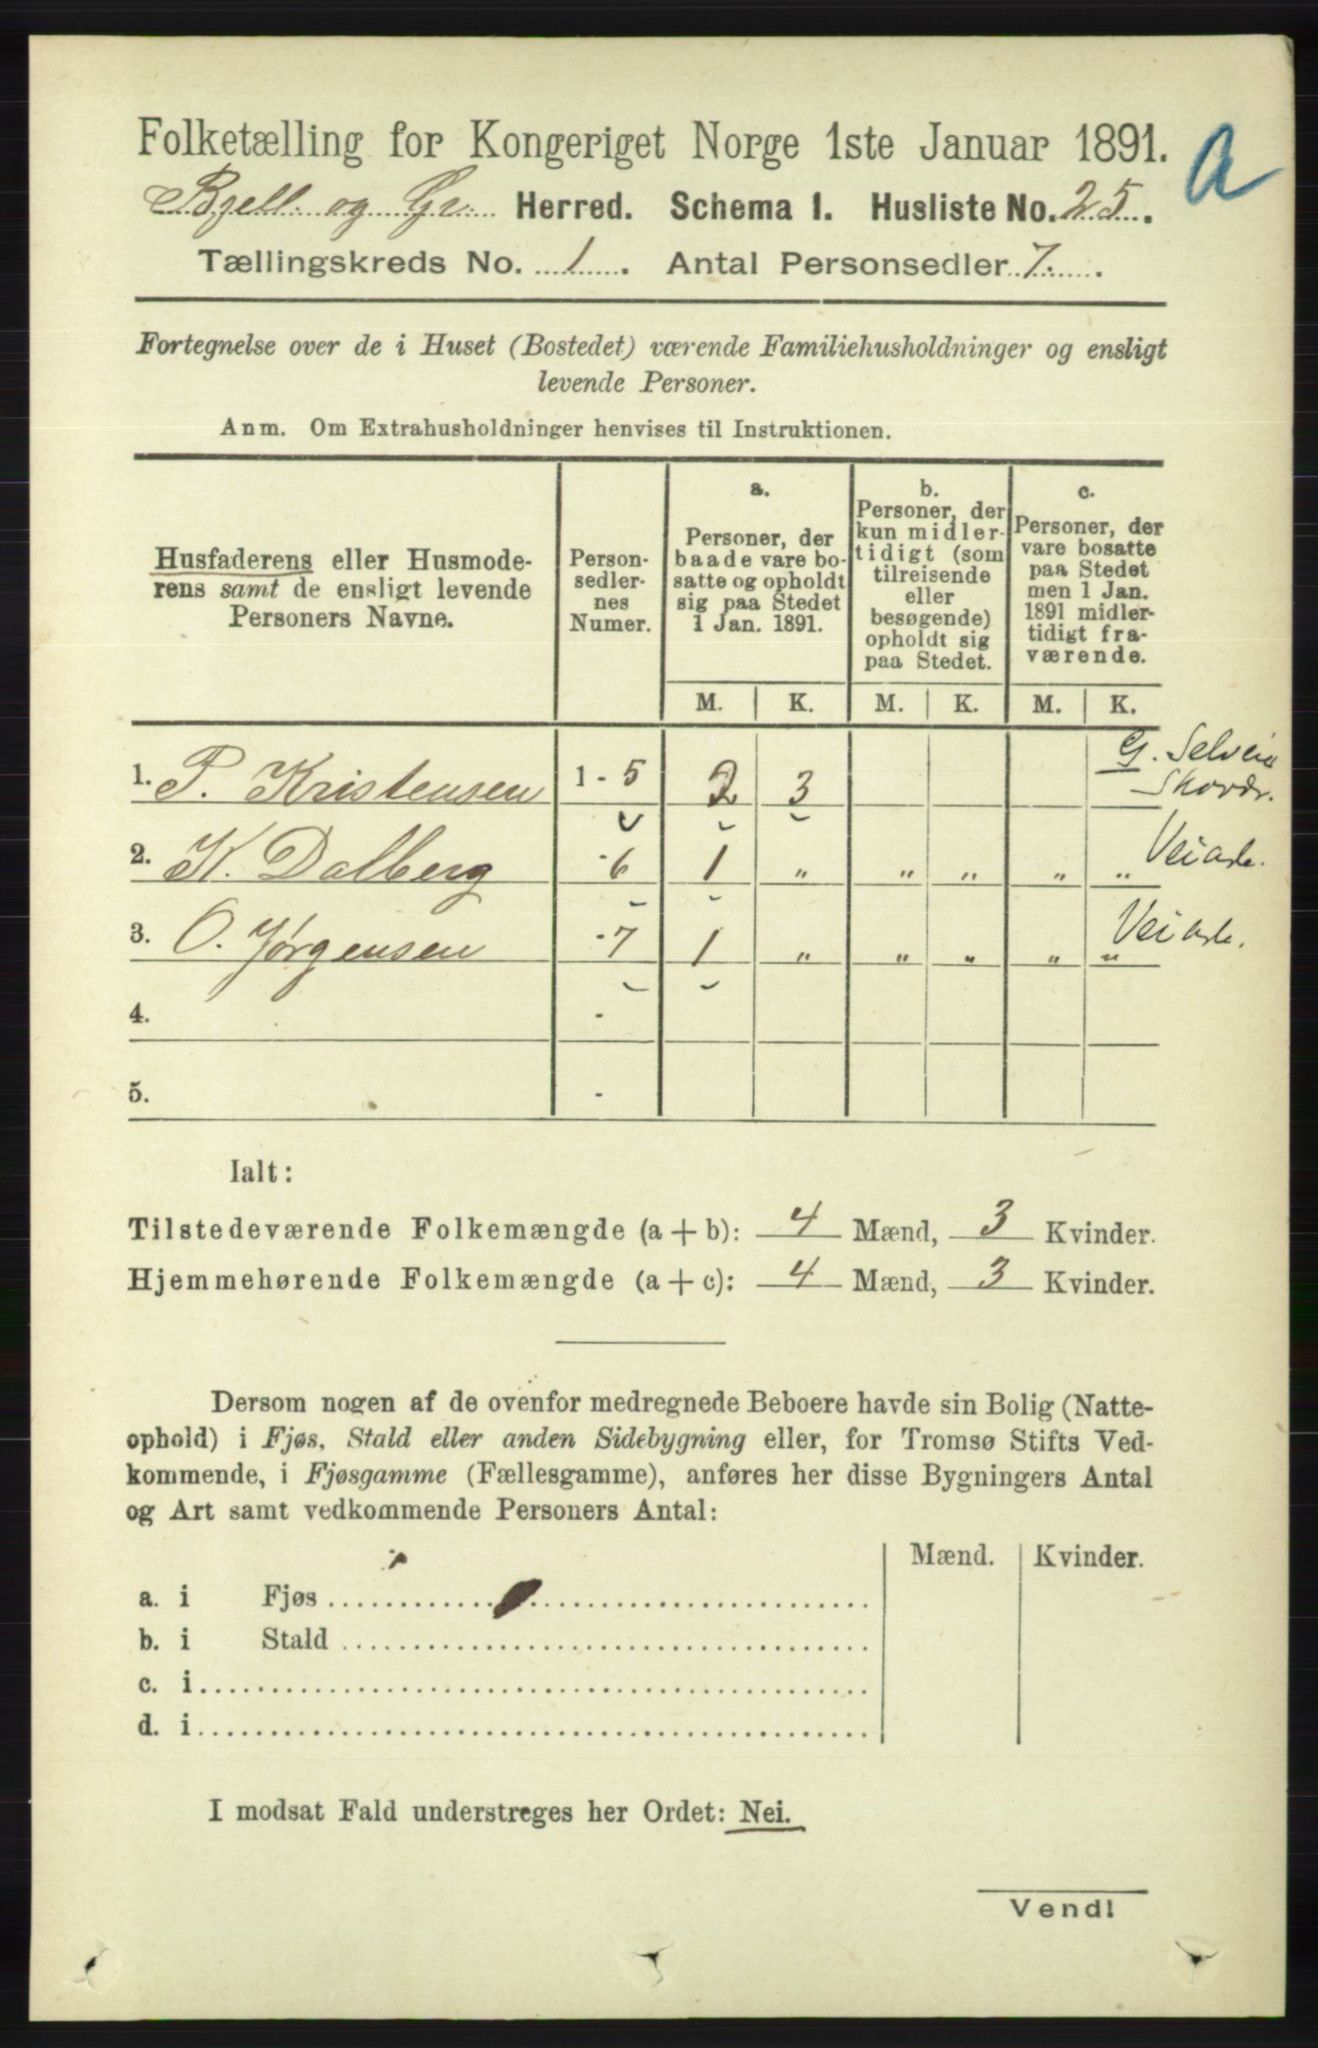 Folketælling for Kongeriget Norge 1ste Januar 1891.
a
Bjell. og Gr. Herred. Schema 1. Husliste No. 25.
Tællingskreds No. 1. Antal Personsedler 7.
Fortegnelse over de i Huset (Bostedet) værende Familiehusholdninger og ensligt
levende Personer.
Anm. Om Extrahusholdninger henvises til Instruktionen.
Husfaderens eller Husmode-
rens samt de ensligt levende
Personers Navne.
Person-
sedler-
nes
Numer.
a.
Personer, der
baade vare bo-
satte og opholdt
sig paa Stedet
1 Jan. 1891.
b.
Personer, der
kun midler-
tidigt (som
tilreisende
eller
besøgende)
opholdt sig
paa Stedet.
c.
Personer, der
vare bosatte
paa Stedet
men 1 Jan.
1891 midler-
tidigt fra-
værende.
M. K. M. K. M. K.
1. P. Kristensen 1 - 5 2 3 G. Selveier
2. K. Dalberg - 6 1 „ „ „ „ „ Veiarb.
3. O. Jørgensen - 7 1 „ „ „ „ „ Veiarb.
4. -
5. -
Ialt:
Tilstedeværende Folkemængde (a + b): 4 Mænd, 3 Kvinder.
Hjemmehørende Folkemængde (a + c): 4 Mænd, 3 Kvinder.
Dersom nogen af de ovenfor medregnede Beboere havde sin Bolig (Natte-
ophold) i Fjøs, Stald eller anden Sidebygning eller, for Tromsø Stifts Ved-
kommende, i Fjøsgamme (Fællesgamme), anføres her disse Bygningers Antal
og Art samt vedkommende Personers Antal:
Mænd. Kvinder.
a. i Fjøs
b. i Stald
c. i
d. i
I modsat Fald understreges her Ordet: Nei.
Vend!